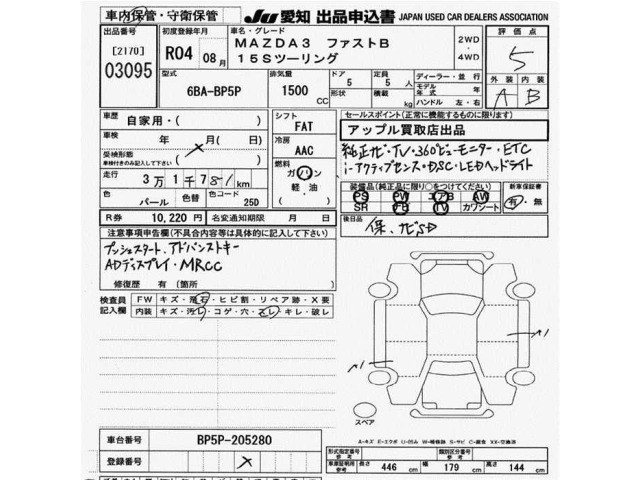 車内保管・守衛保管 JU 愛知 出品申込書 JAPAN USED CAR DEALERS ASSOCIATION
出品番号 [2170] 03095
初度登録年月 R04 08月
車名・グレード MAZDA3 ファストB 15Sツーリング
2WD・4WD
評価点 5
外装 A 内装 B
型式 6BA-BP5P
排気量 1500 CC
ドア 5 形状
定員 5人 積載 kg
ディーラー・並行
モデル年式 年
ハンドル 左・右
車歴 自家用・( )
シフト FAT
セールスポイント(正常に機能するものに限ります)
アップル買取店出品
車検 年 ×月( 日)
受検形態 車検付きのみ記入して下さい ( )
冷房 AAC
純正ナビ・TV・360°ビューモニター・ETC
i-アクティブセンス・DSC・LEDヘッドライト
走行 3万1千781km
燃料 ガソリン・軽油 ( )
装備品(純正品に限り○をつけてください)
PS PW エアB AW
SR TV カワシート
新車保証書 有・無
色 パール 色替 色コード 25D
R券 10,220 円 名変通知期限 月 日
後日品 保、ナビSD
注意事項申告欄(不具合等は具体的に記入して下さい)
プッシュスタート、アドバンストキー
ADディスプレイ・MRCC
修復歴 有(箇所 )
検査員記入欄 FW キズ・飛石・ヒビ割・リペア跡・X要
内装 キズ・汚レ・コゲ・穴・スレ・キレ・破レ
A1
A1
スペア
車台番号 BP5P-205280
登録番号 ×
型式指定番号 参考
類別区分番号 参考
車両証明用 参考 長さ 446 cm 幅 179 cm 高さ 144 cm